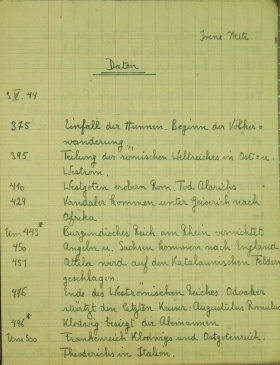 Irene Metz
Daten
3.III.44
375 Einfall der Hunnen. Beginn der Völker=
wanderung
395 Teilung des römischen Weltreiches in Ost= u.
Westrom.
410 Westgoten erobern Rom. Tod Alarichs
429 Vandalen kommen unter Geiserich nach
Afrika
Um 443* Burgundisches Reich am Rhein vernichtet
450 Angeln u. Sachsen kommen nach England
451 Attila wird auf den Katalaunischen Feldern
geschlagen.
476 Ende des Weströmischen Reiches. Odoaker
stürzt den letzten Kaiser: Augustulus Romulus
496* Klodwig besiegt die Alemannen
Um 500 Frankenreich Klodwigs und Ostgotenreich
Theoderichs in Italien.